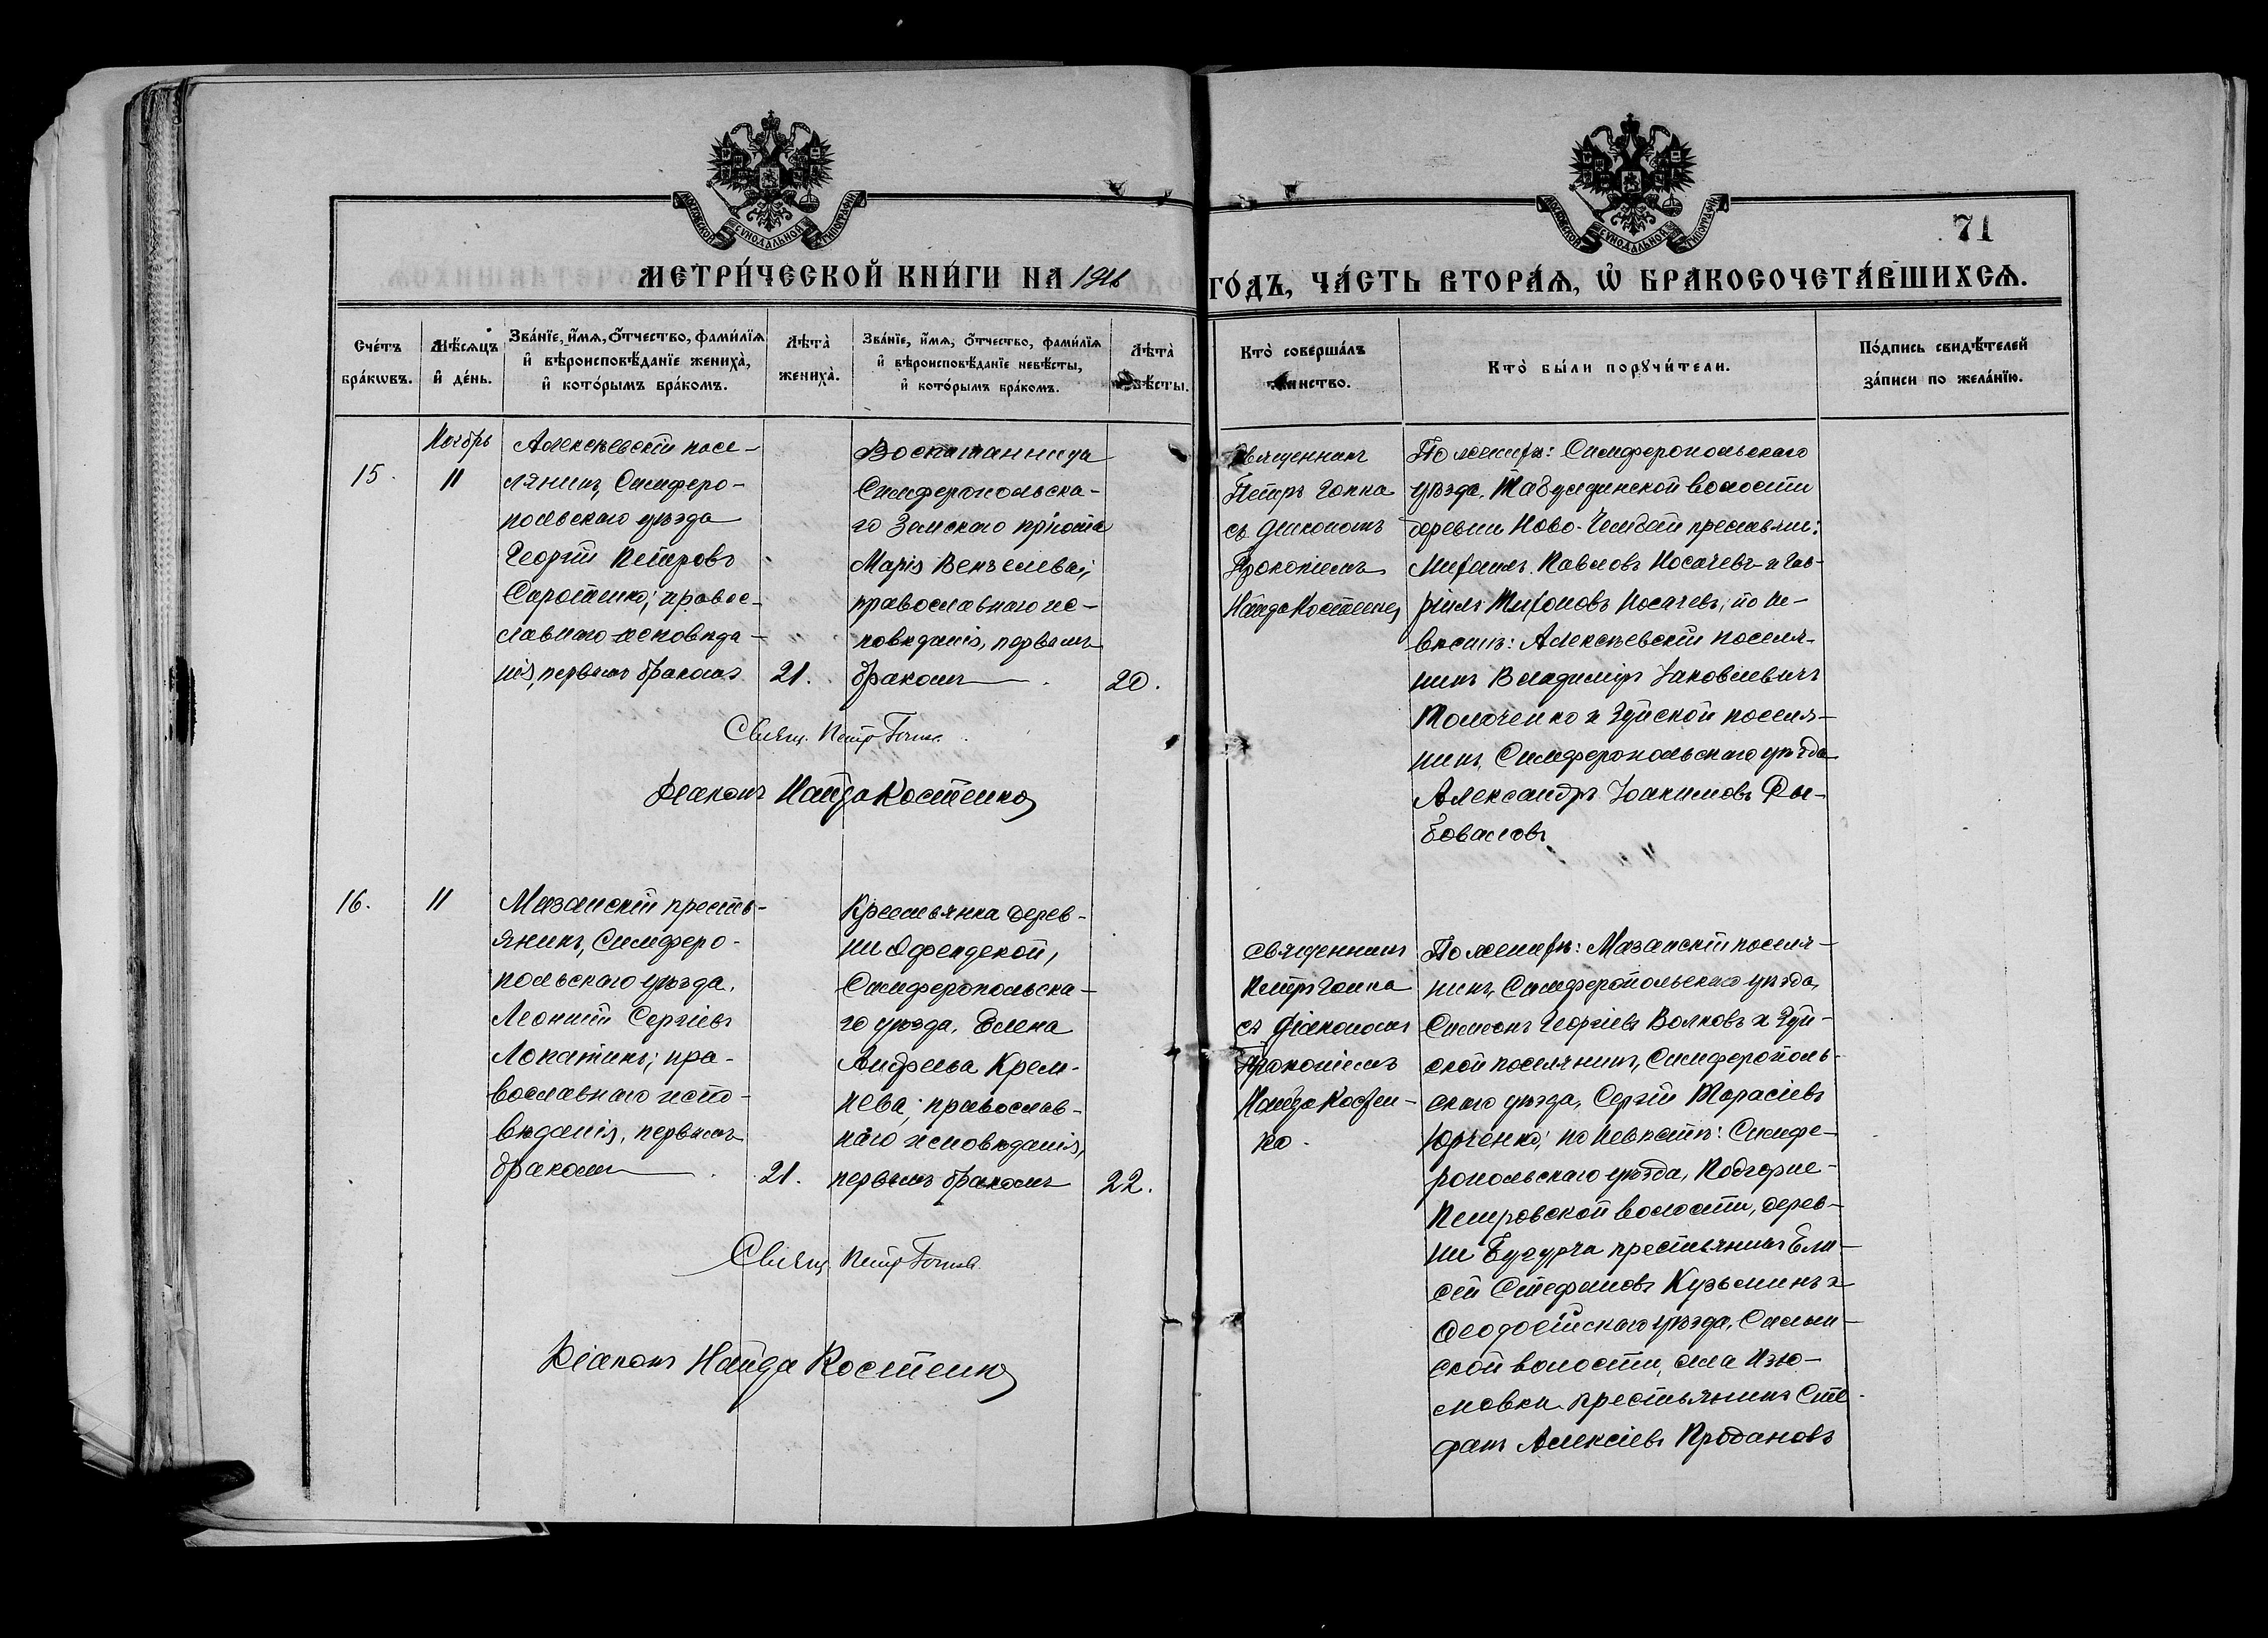 МОСКОВСКОЙ СѴНОДАЛЬНОЙ ТИПОГРАФІИ
МОСКОВСКОЙ СѴНОДАЛЬНОЙ ТИПОГРАФІИ
71
МЕТРИ́ЧЕСКОЙ КНИ́ГИ НА
ГО́ДЪ, ЧА́СТЬ ВТОРА́Ѧ, Ѡ҆ БРАКОСОЧЕТА́ВШИХСѦ.
Сче́тъ бра́кѡвъ.
Мѣ́сѧцъ и҆ де́нь.
Зва́нїе, и҆́мѧ, ѻ҆́тчество, фами́лїѧ
и҆ вѣроисповѣ́данїе жениха̀,
и҆ кото́рымъ бра́комъ.
Лѣта̀ жениха̀.
Зва́нїе, и҆́мѧ, ѻ҆́тчество, фами́лїѧ
и҆ вѣроисповѣ́данїе невѣ́сты,
и҆ кото́рымъ бра́комъ.
Лѣта̀
Кто̀ соверша́лъ
Кто̀ бы́ли порꙋчи́тели.
По́дпись свидѣ́телей
за́писи по жела́нїю.
15.
Ноябрь
11
Алексѣевскій посе-
лянинъ, Симферо-
польскаго уѣзда
Георгій Петровъ
православнаго исповѣда-
нія, первымъ бракомъ
21.
Воспитанница
Симферопольска-
го Земскаго пріюта
Марія
православнаго ис-
повѣданія, первымъ
бракомъ
20.
Священникъ
Петръ Гопка
съ діакономъ
Прокопіемъ
Найда Костенко
По женихѣ: Симферопольскаго
уѣзда, Табулдинской волости
деревни Ново-
Павловъ Носачевъ и Гав-
ріилъ Носачевъ; по не-
вѣстѣ: Алексѣевскій поселя-
нинъ Владиміръ Іаковлевичъ
и Зуйской поселя-
нинъ, Симферопольскаго уѣзда
Александръ Іоакимовъ
Свящ. Петр Гопка
Діаконъ Найда Костенко
16.
11
Мазанскій кресть-
янинъ, Симферо-
польскаго уѣзда,
Леонтій Сергіевъ
Лопатинъ; пра-
вославнаго испо-
вѣданія, первымъ
бракомъ
21.
Крестьянка дерев-
ни
Симферопольска-
го уѣзда, Елена
Андреева Крем-
нева; православ-
наго исповѣданія,
первымъ бракомъ
22.
Священникъ
Петръ Гопка
съ діакономъ
Прокопіемъ
Найда Костен-
ко.
По женихѣ: Мазанскій поселя-
нинъ, Симферопольскаго уѣзда,
Симеонъ Георгіевъ Волковъ и Зуй-
ской поселянинъ, Симферополь-
скаго уѣзда, Сергій Тарасіевъ
Юрченко; по невѣстѣ: Симфе-
ропольскаго уѣзда, Подгорне-
Петровской волости, дерев-
ни крестьянинъ Ели-
сей Стефановъ Кузьминъ и
Ѳеодосійскаго уѣзда,
ской волости, села Изю-
мовки крестьянинъ Сте-
фанъ Алексіевъ Продановъ
Свящ. Петр Гопка
Діаконъ Найда Костенко